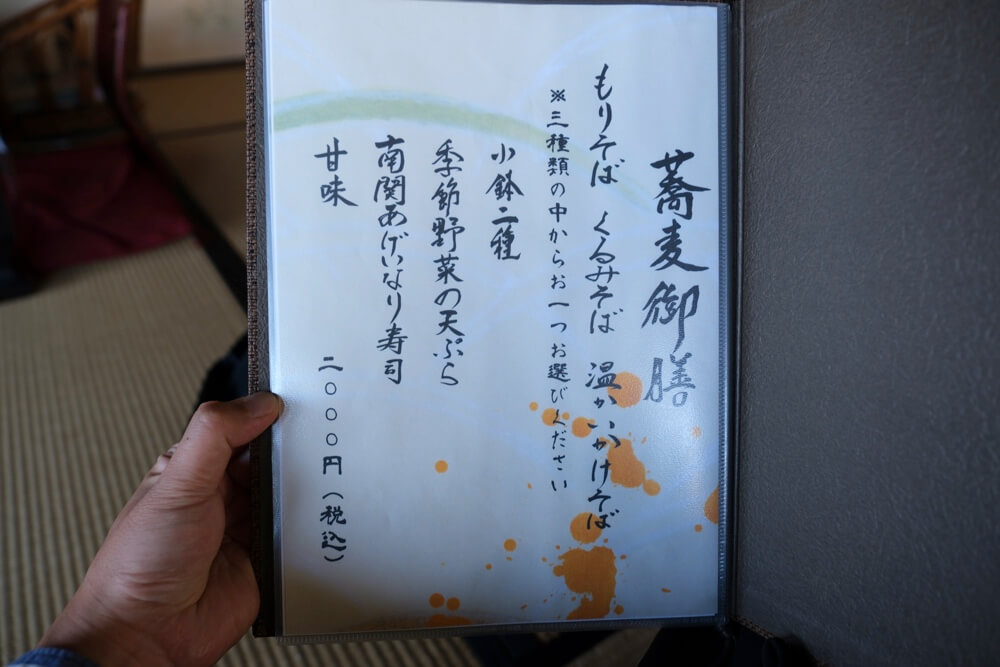 蕎麦御膳
もりそば くるみそば 温かいかけそば
※三種類の中からお一つお選びください
小鉢二種
季節野菜の天ぷら
南関あげいなり寿司
甘味
二〇〇〇円(税込)